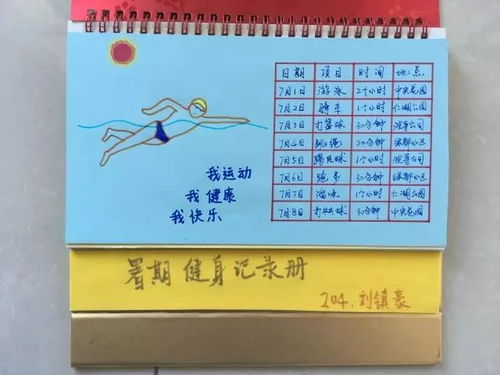 日期 项目 时间 地点
7月1日 游泳 2个小时 中央花园
7月2日 骑车 1个小时 仁湖公园
7月3日 打篮球 30分钟 滨菁公园
7月4日 跳绳 20分钟 绿都小区
7月5日 踢足球 1个小时 滨菁公园
7月6日 跑步 30分钟 绿都小区
7月7日 游泳 1个小时 仁湖公园
7月8日 打乒乓球 30分钟 中央花园
我运动
我健康
我快乐
暑期健身记录册
204.刘镇豪